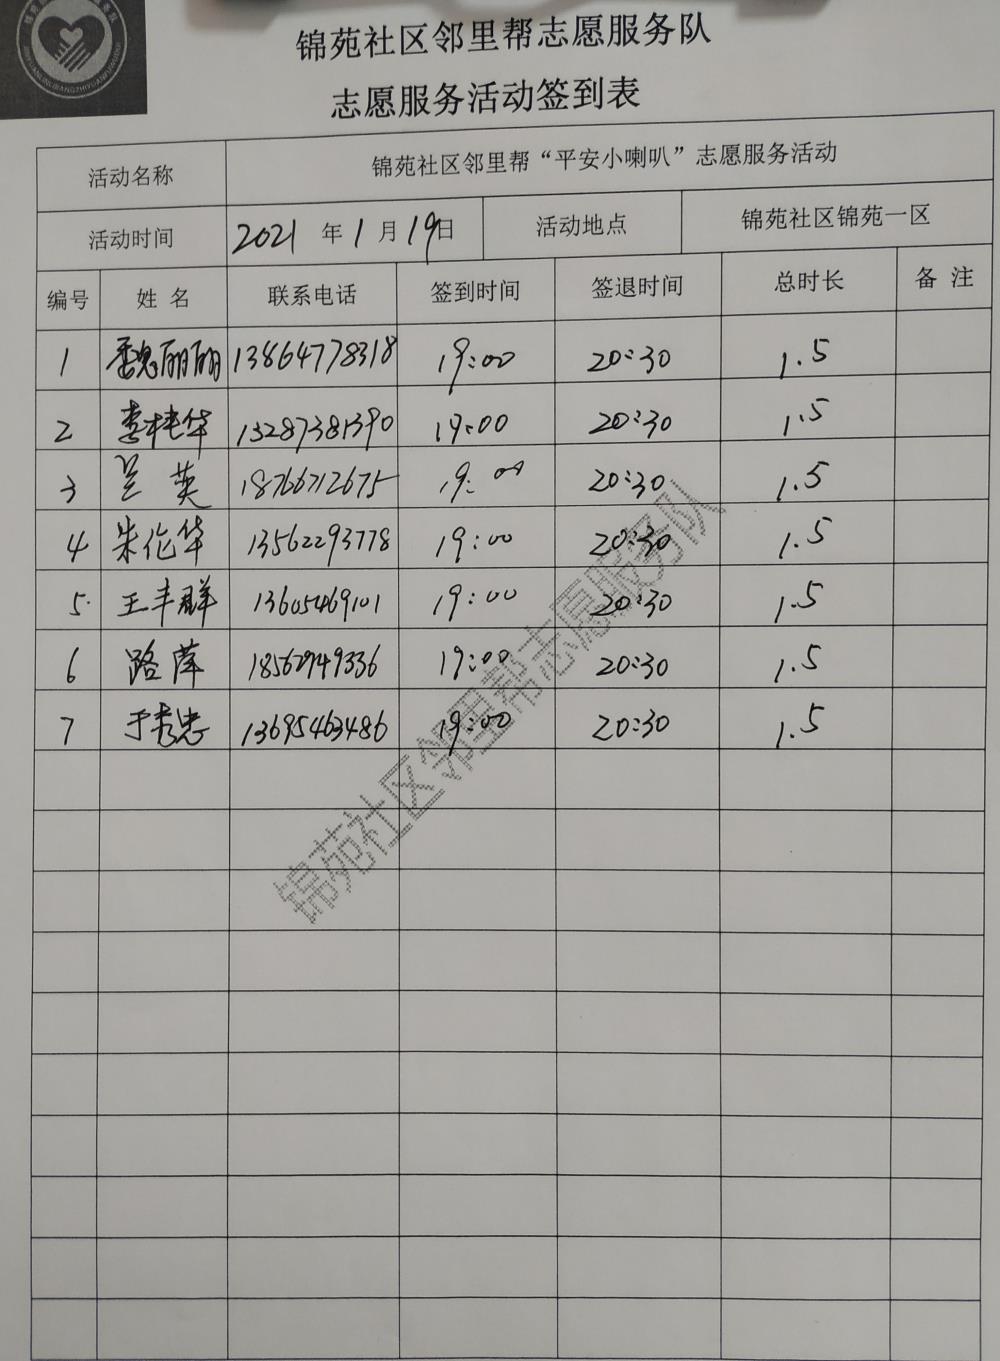 锦苑社区邻里帮志愿服务队
志愿服务活动签到表
活动名称 锦苑社区邻里帮“平安小喇叭”志愿服务活动
活动时间 2021 年 1 月 19日 活动地点 锦苑社区锦苑一区
编号 姓 名 联系电话 签到时间 签退时间 总时长 备 注
1 魏丽丽 13864778318 19:00 20:30 1.5
2 李桂华 13287381390 19:00 20:30 1.5
3 兰英 18766712675 19:00 20:30 1.5
4 朱伦华 13562293778 19:00 20:30 1.5
5. 王丰群 13605469101 19:00 20:30 1.5
6 路萍 18562949336 19:00 20:30 1.5
7 于秀忠 13695463486 19:00 20:30 1.5
锦苑社区邻里帮志愿服务队